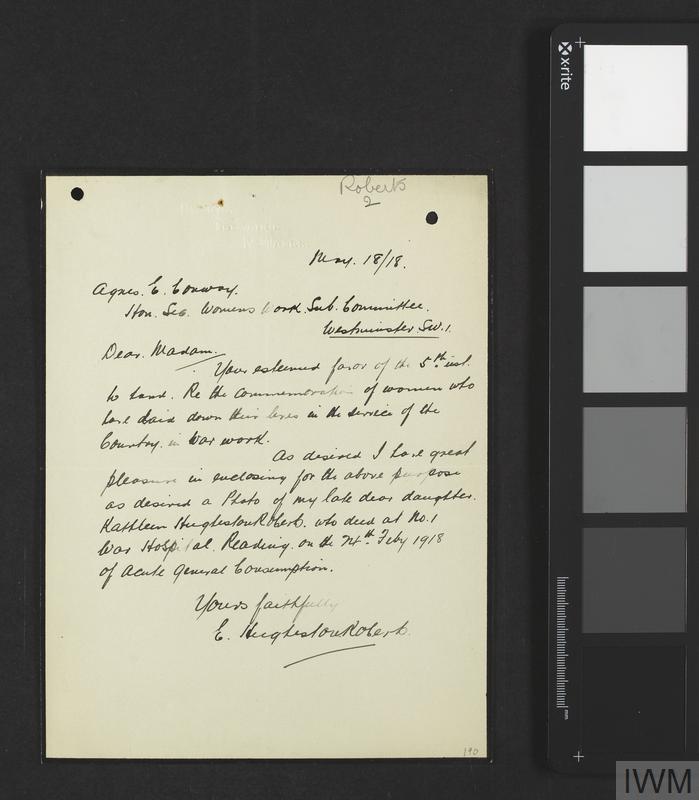 Roberts
2
May. 18/18.
Agnes. E. Conway.
Hon. Sec. Womens Work. Sub. Committee.
Westminster. S.W.1.
Dear. Madam.
Your esteemed favor of the 5th. inst.
to hand. Re the commemoration of women who
have laid down their lives in the service of the
Country. in War work.
As desired I have great
pleasure in enclosing for the above purpose
as desired a Photo of my late dear daughter.
Kathleen Hugheston Roberts. who died at No. 1
War Hospital. Reading. on the 24th Feby 1918
of Acute General Consumption.
Yours faithfully
E. Hugheston Roberts.
190
x-rite
mm
IWM